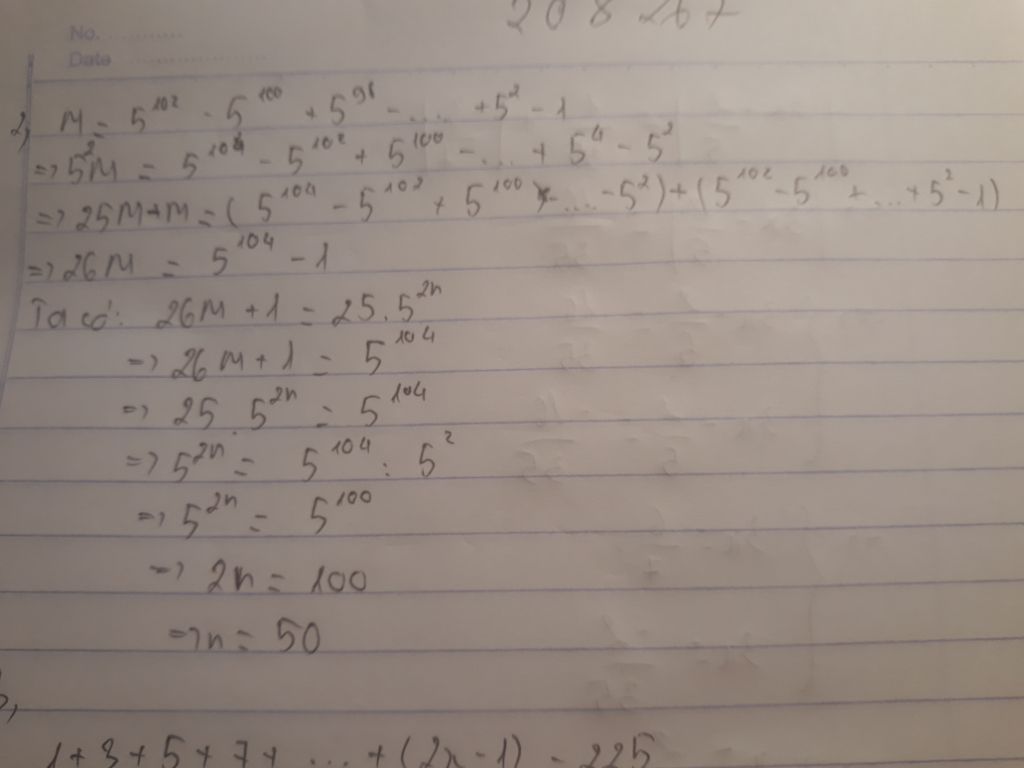 208267
No. ............
Date ..................
2, M = 5^102 - 5^100 + 5^98 - ..... + 5^2 - 1
=> 5^2M = 5^104 - 5^102 + 5^100 - ... + 5^4 - 5^2
=> 25M+M = (5^104 - 5^102 + 5^100 - .... - 5^2) + (5^102 - 5^100 + ... + 5^2 - 1)
=> 26M = 5^104 - 1
Ta có: 26M + 1 = 25.5^2n
=> 26M + 1 = 5^104
=> 25.5^2n = 5^104
=> 5^2n = 5^104 : 5^2
=> 5^2n = 5^100
=> 2n = 100
=> n = 50
3,
1 + 3 + 5 + 7 + ... + (2x - 1) = 225